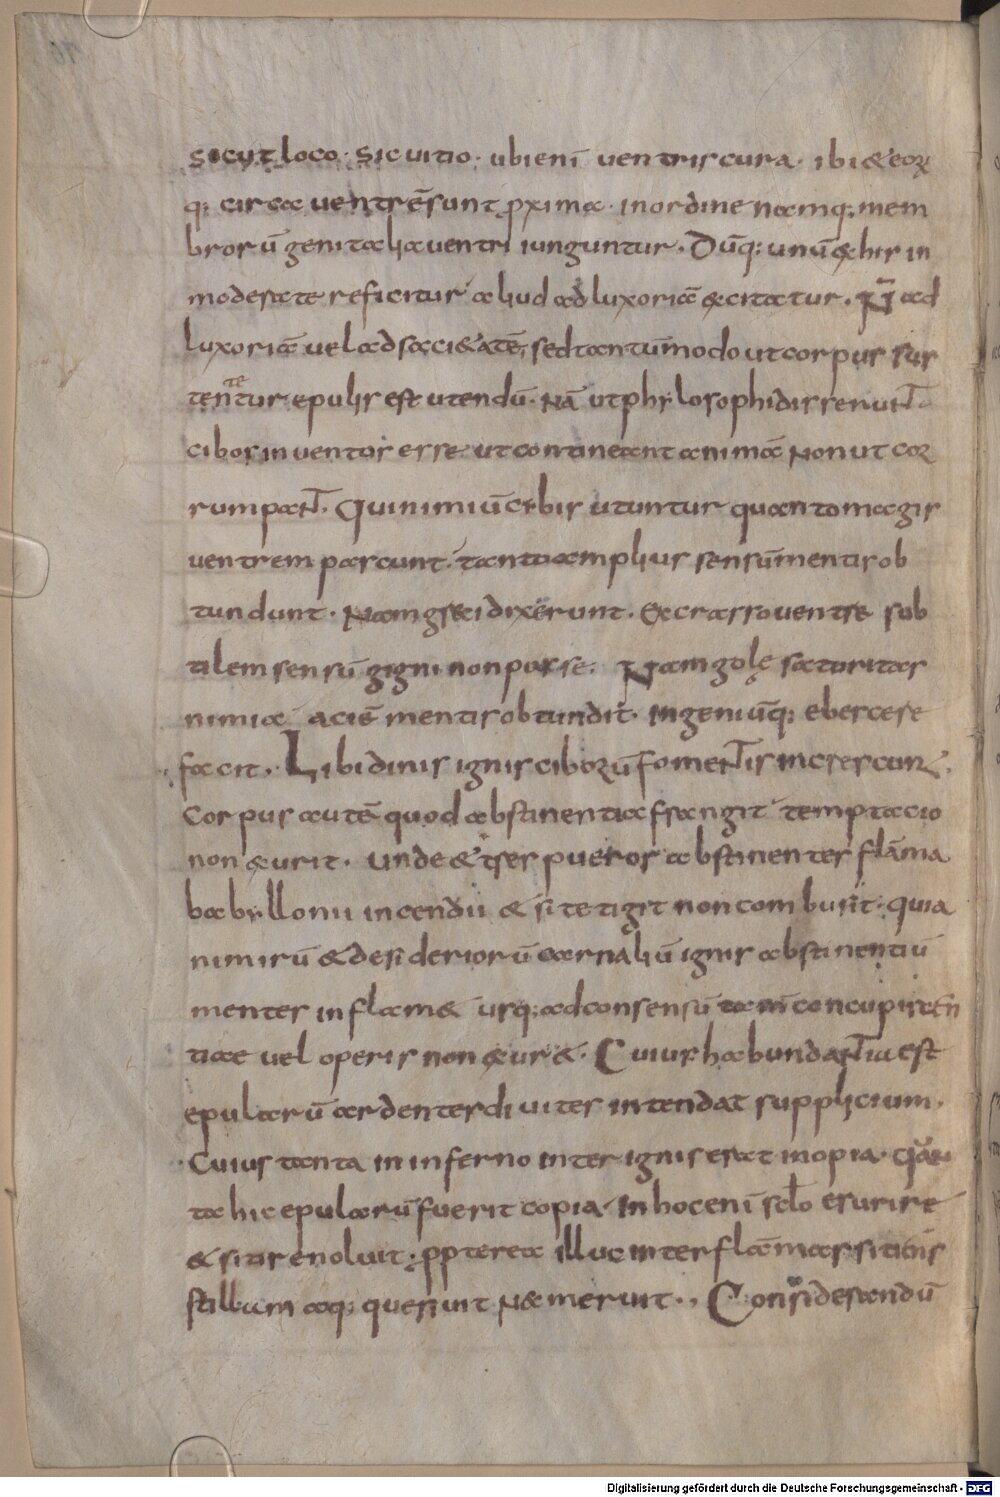 sicut loco · sic uitio · ubi enī uentris cura · ibi & eoꝝ
q; circa uentrē sunt ꝓxima · in ordine namq; mem
brorū genitalia uentri iunguntur · Dūq; unū ex his in
moderate reficitur aliud ad luxoriā excitatur · N̄ ad
luxoriā uel ad saci&atē, sed tantūmodo ut corpus sus
tentetur epulis est utendū · Nā ut phylosophi disserunt
cibos inuentos esse · ut contineant animā non ut cor
rumpant. Qui nimiū cibis utuntur quanto magis
uentrem pascunt · tanto amplius sensū mentis ob
tundunt · Nam greci dixerunt · Ex crasso uentre sub
tilem sensū gigni non posse. Nam gulę saturitas
nimia aciē mentis obtundit · ingeniūq; ebercere
facit · Libidinis ignis ciborū fomentis increscunt.
Corpus autē quod abstinentia frangit temptacio
non exurit. unde & tres pueros abstinentes flāma
babylloni incendii & si tetigit non combusit · quia
nimirū & desideriorū carnaliū ignis abstinentiū
mentes inflam& usq; ad consensū tam concupiscen
tiae uel operis non exur&. Cuius habundantia est
epularū ardentes diuites intendat supplicium.
Cuius tanta in inferno inter ignis erat inopia · quan
ta hic epularū fuerit copia · In hoc enī sclo esurire
& sitire noluit · ꝓpterea illuc inter flāmas sitiens
stillam aq; quesiuit nec meruit · , Considerandū
Digitalisierung gefördert durch die Deutsche Forschungsgemeinschaft - DFG